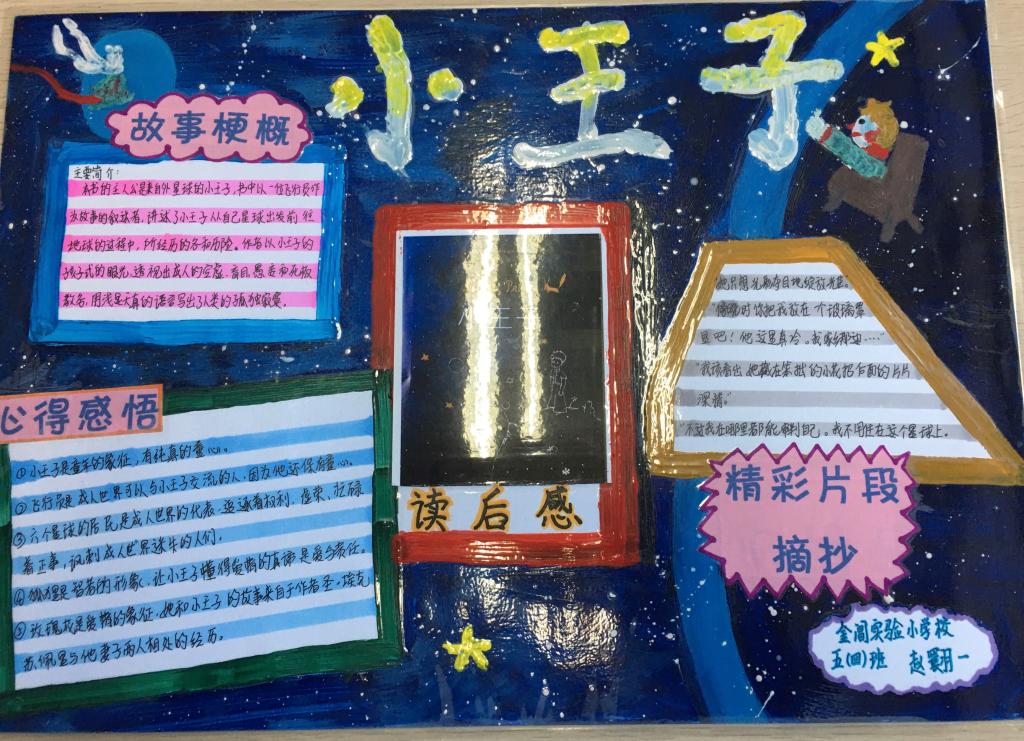 小王子
故事梗概
主要简介:
本书的主人公是来自外星球的小王子,书中以一位飞行员作
为故事的叙述者,讲述了小王子从自己星球出发前往
地球的过程中,所经历的各和历险。作者以小王子的
孩子式的眼光,透视出成人的空虚、盲目,愚妄和死板
教条,用浅显天真的语言写出了人类的孤独寂寞。
心得感悟
①小王子是童年的象征,有纯真的童心。
②飞行员是成人世界可以与小王子交流的人,因为他还保有童心。
③六个星球的居民是成人世界的代表,追逐着权利、虚荣、忙碌
着正事,讽刺成人世界迷失的人们。
④狐狸是智者的形象,让小王子懂得爱情的真谛是爱与责任。
⑤玫瑰花是爱情的象征,她和小王子的故事来自于作者圣·埃克
苏佩里与他妻子两人相处的经历。
小王子
读后感
她只用光艳夺目地绽放光茫。"
"傍晚时你把我放在一个玻璃罩
里吧!他这里真冷。我家那边……"
"我该看出她藏在笨拙的小花招后面的片片
深情。"
"不过我在哪里都能审判自己。我不用住在这个星球上。
精彩片段
摘抄
金阊实验小学校
五(四)班 赵翾一